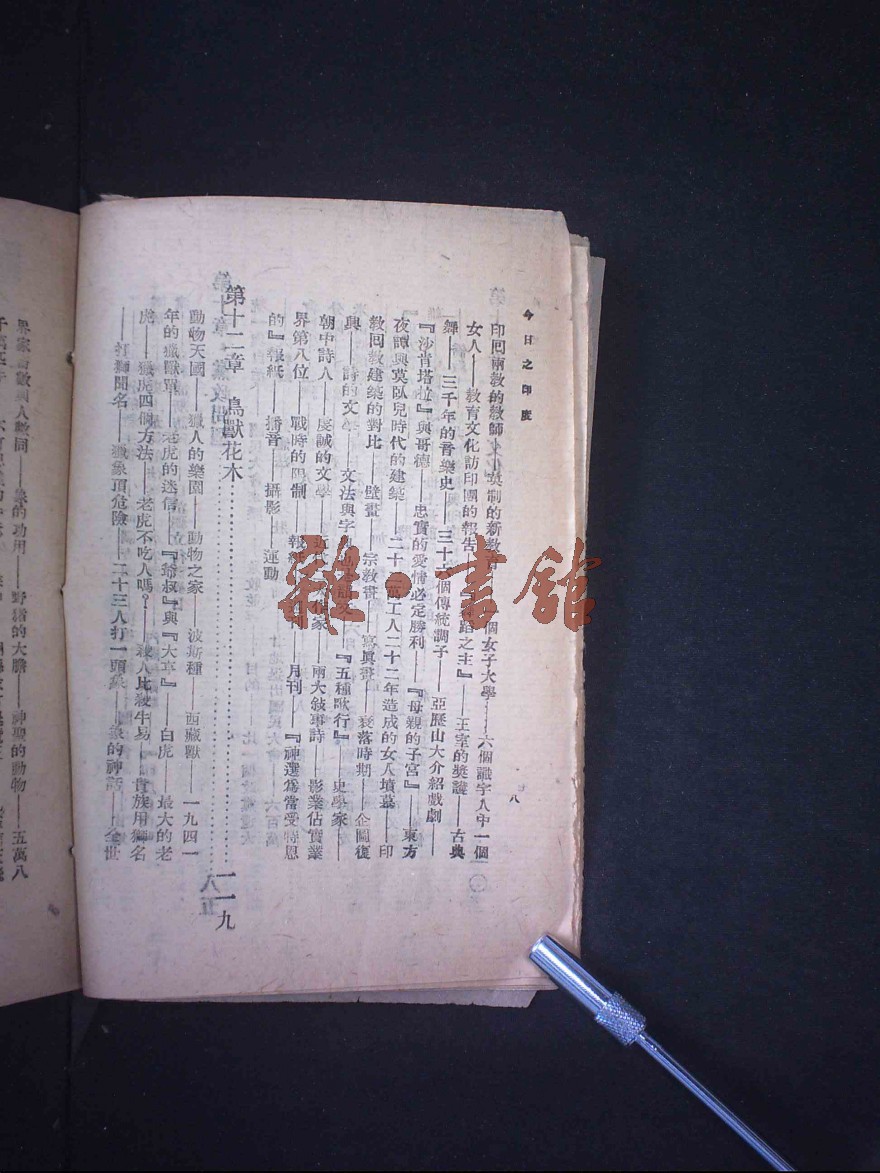 今日之印度
八
印回兩教的教師——英制的新教育——個女子大學——六個識字人中一個
女人——教育文化訪印團的報告——舞蹈之主』——王室的獎護——古典
舞——三千年的音樂史——三十六個傳統調子——亞歷山大介紹戲劇——
『沙肯塔拉』與哥德——忠實的愛情必定勝利——『母親的子宮』——東方
夜譚與莫臥兒時代的建築——二十二萬工人二十二年造成的女人墳墓——印
教回教建築的對比——壁畫——宗教畫——寫眞畫——衰落時期——企圖復
興——詩的文——文法與字——『五種歌行』——史學家——
朝中詩人——虔誠的文學——近代作家——兩大敍事詩——影業佔實業
界第八位——戰時的限制——報紙——月刊——『神選爲常受特恩
的』報紙——播音——攝影——運動
第十二章 鳥獸花木……一一九
動物天國——獵人的樂園——動物之家——波斯種——西藏獸——一九四一
年的獵獸單——老虎的迷信——『爺叔』與『大卒』——白虎——最大的老
虎——獵虎四個方法——老虎不吃人嗎？——殺人比殺牛易——貴族用獅名
——打獅聞名——獵象頂危險——二十三人打一頭象——象的神話——全世
界家畜數與人數同——象的功用——野豬的大膽——神聖的動物——五萬八
雜·書館